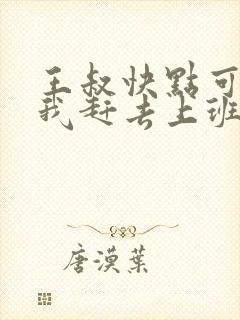 王叔快點可
我赶去上班
唐漠葉